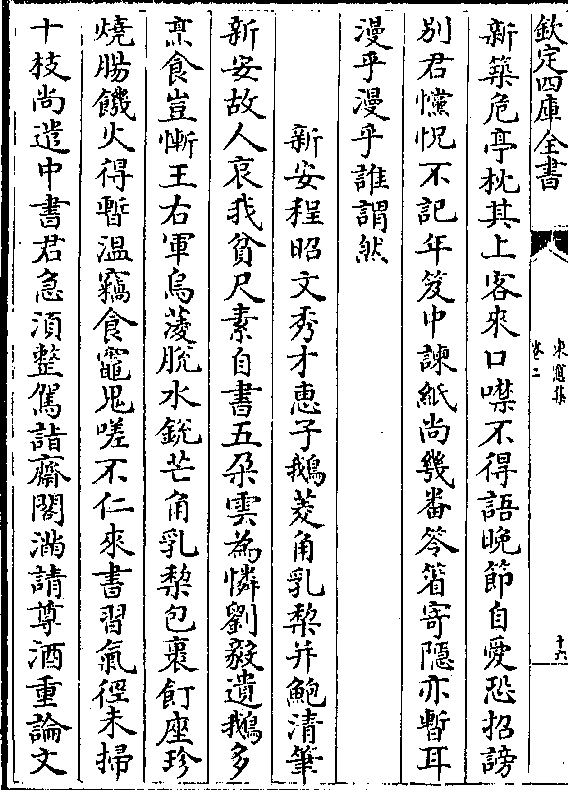 欽定四庫全書
東窗集
卷二
十六
新築危亭枕其上客來口噤不得語晚節自愛恐招謗
別君戃怳不記年笈中諫紙尚幾番笭箵寄隱亦暫耳
漫乎漫乎誰謂然
新安程昭文秀才惠子鵝菱角乳棃并鮑清筆
新安故人哀我貧尺素自書五朶雲為憐劉毅遺鵝多
烹食豈慚王右軍烏菱脫水銳芒角乳棃包裹飣座珍
燒腸饑火得暫溫竊食竈鬼嗟不仁來書習氣徑未掃
十枝尚遣中書君急湏整駕詣齋閤滿請尊酒重論文